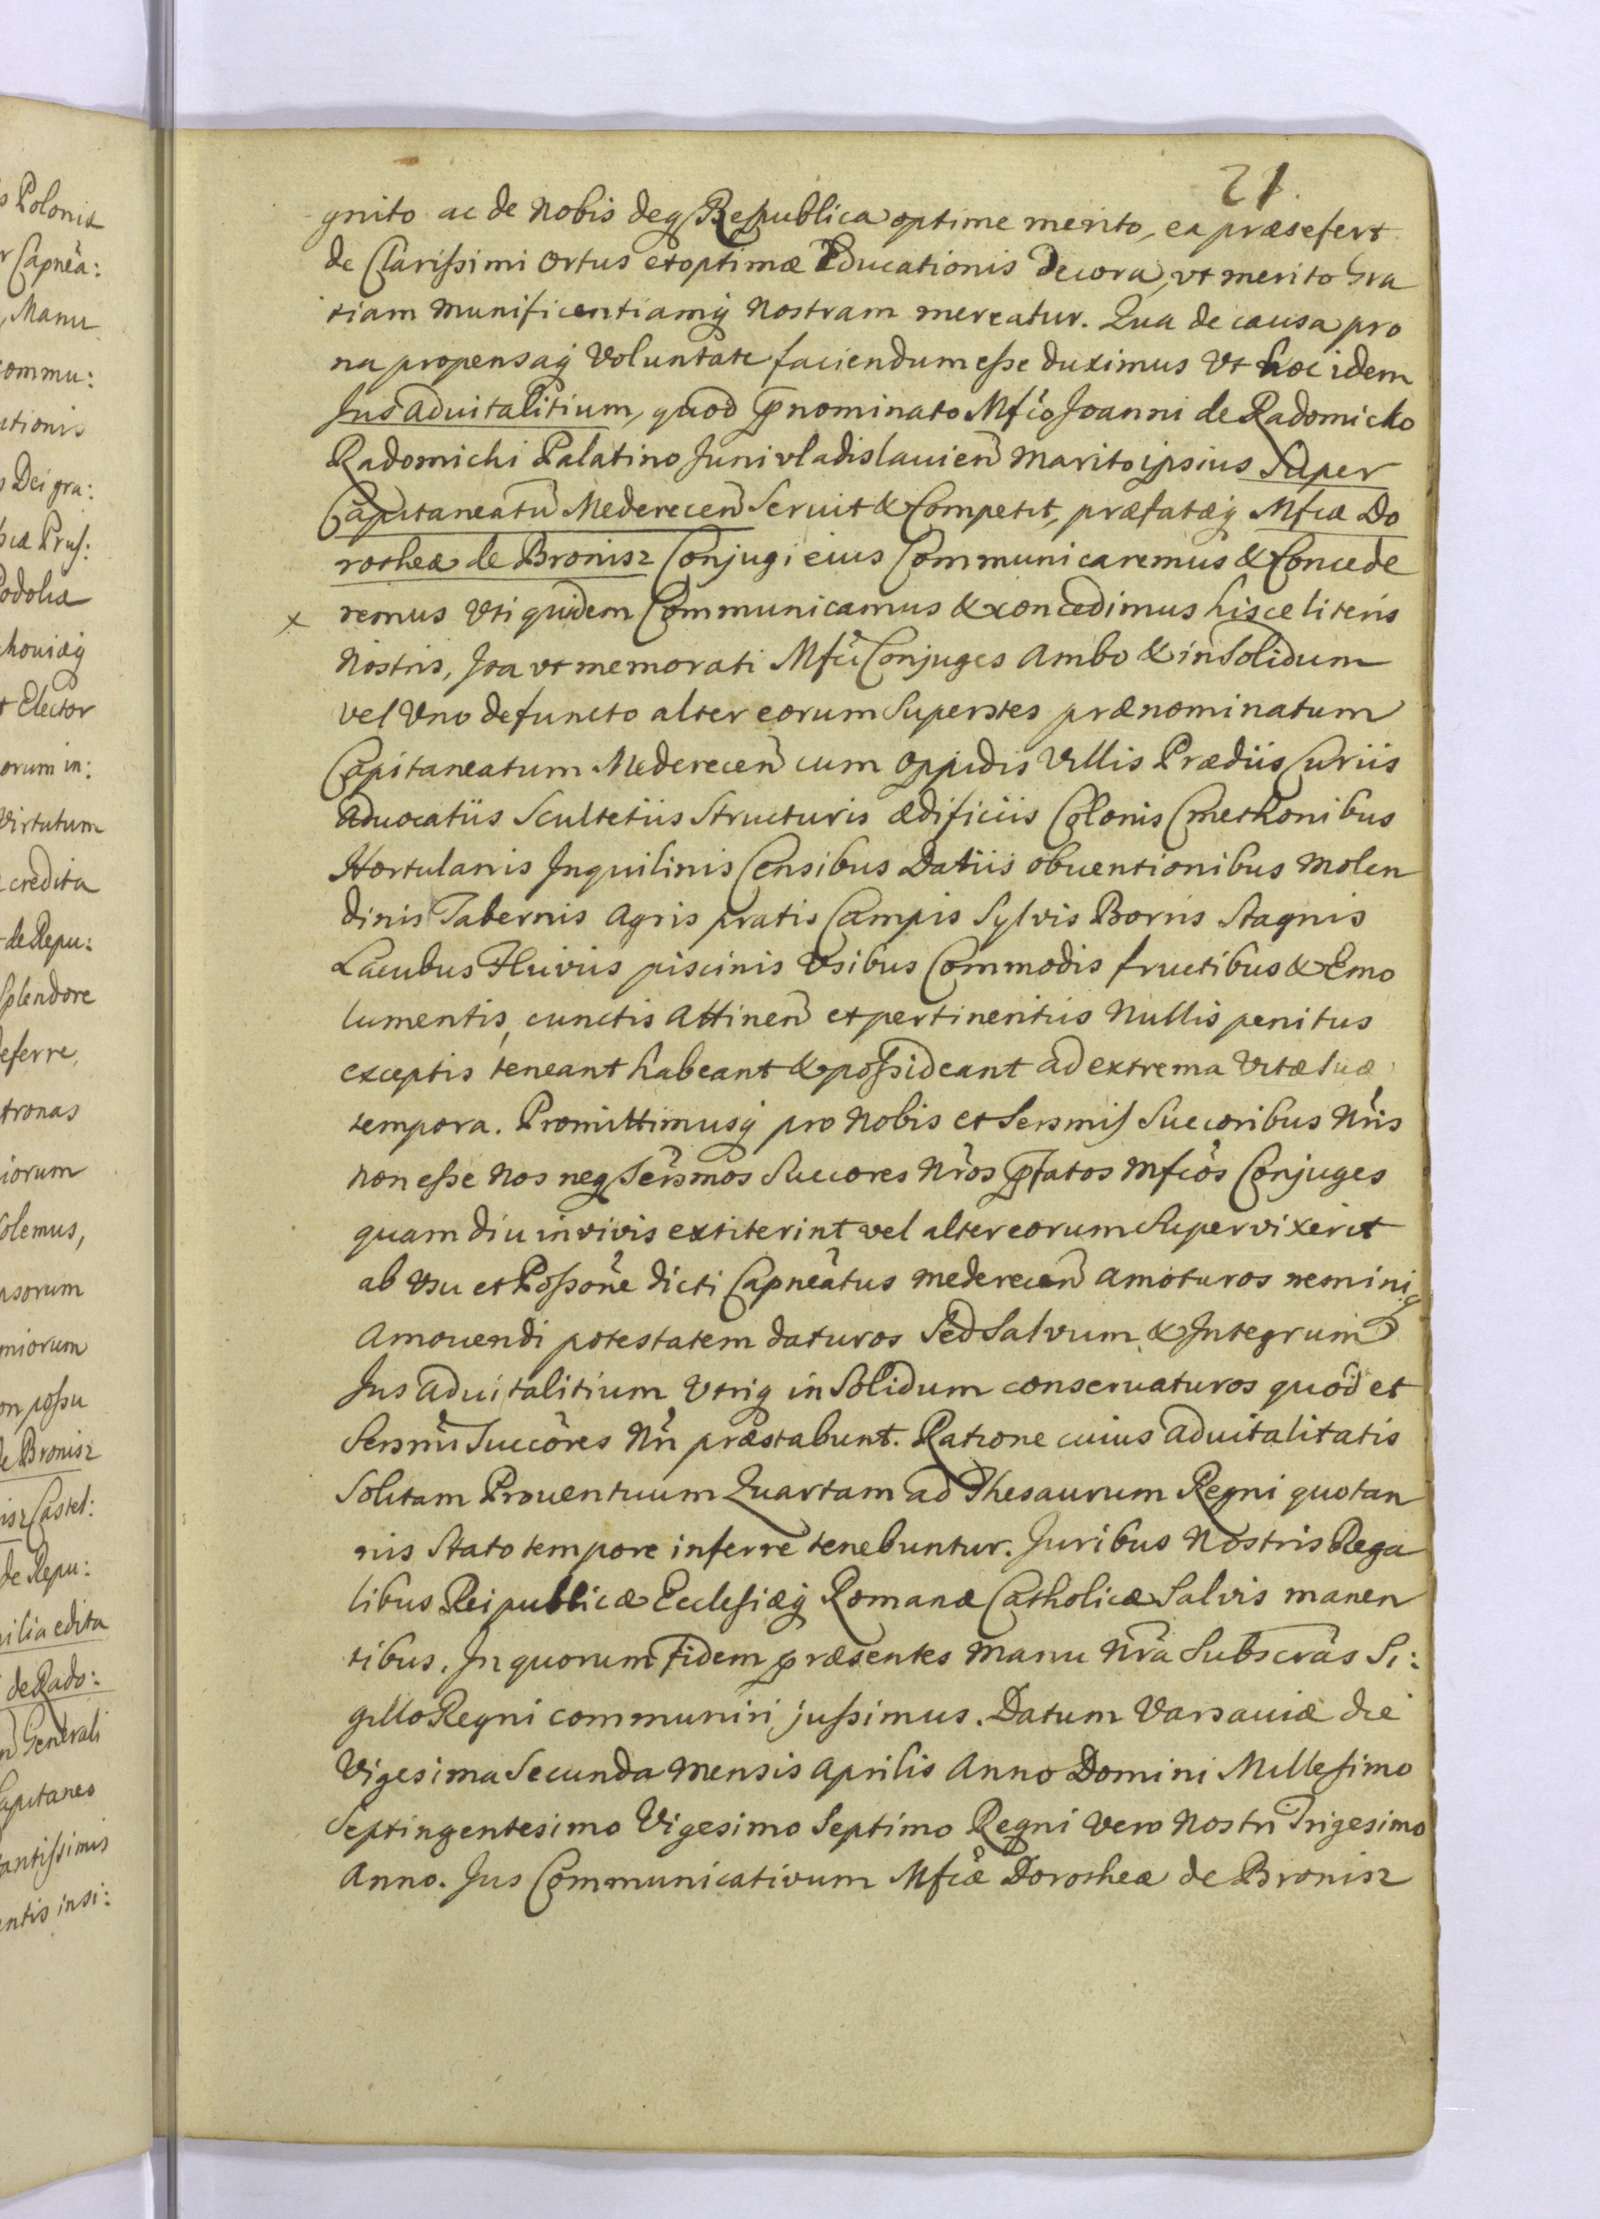 21.
gnito ac de Nobis deq Republica optime merito, ea præsefert
de Clarissimi Ortus et optimæ Educationis Decora, vt merito Gra
tiam Munificentiamq Nostram mereatur. Qua de causa pro
na propensaq Voluntate faciendum esse duximus Vt hoc idem
Jus aduitalitium, quod prænominato Mfco Joanni de Radomicko
Radomichi Palatino Junivladislauien Marito ipsius Super
Capitaneatu Mederecen Seruit & Competit, præfatæq Mfcæ Do
rotheæ de Bronisz Conjugi eius Communicaremus & Concede
x remus Vti quidem Communicamus & concedimus hisce literis
Nostris, Ita vt memorati Mfci Conjuges Ambo & in Solidum
vel Vno defuncto alter eorum Superstes prænominatum
Capitaneatum Mederecen cum Oppidis Villis Prædiis Curiis
Aduocatiis Scultetiis Structuris ædificiis Colonis Cmethonibus
Hortulanis Inquilinis Censibus Datiis obuentionibus Molen
dinis Tabernis Agris pratis Campis Sylvis Borris Stagnis
Lacubus Fluviis piscinis Vsibus Commodis fructibus & Emo
lumentis, cunctis Attinen et pertinentiis Nullis penitus
exceptis teneant habeant & possideant ad extrema Vitæ suæ
tempora. Promittimusq pro Nobis et Sersmis Succoribus Nris
non esse Nos neq Sersmos Succores Nros pfatos Mfcos Conjuges
quam diu in vivis extiterint vel alter eorum Supervixerit
ab Vsu et Possone dicti Capneatus Mederecen Amoturos neminiq
Amouendi potestatem daturos Sed Salvum & Integrum
Jus Aduitalitium Vtriq in Solidum conseruaturos quod et
Sersmi Succores Nri præstabunt. Ratione cuius Aduitalitatis
Solitam Prouentuum Quartam ad Thesaurum Regni quotan
nis Stato tempore inferre tenebuntur. Juribus Nostris Rega
libus Reipublicæ Ecclesiæq Romanæ Catholicæ Salvis manen
tibus. In quorum Fidem præsentes Manu Nra Subscras Si:
gillo Regni communiri jussimus. Datum Varsaviæ die
Vigesima Secunda Mensis Aprilis Anno Domini Millesimo
Septingentesimo Vigesimo Septimo Regni Vero Nostri Trigesimo
Anno. Jus Communicativum Mfcæ Dorotheæ de Bronisz